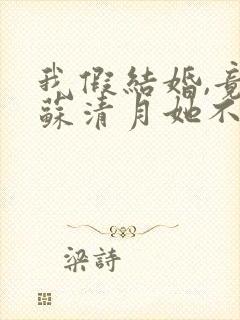 我假結婚,竟
蘇清月她不
梁詩